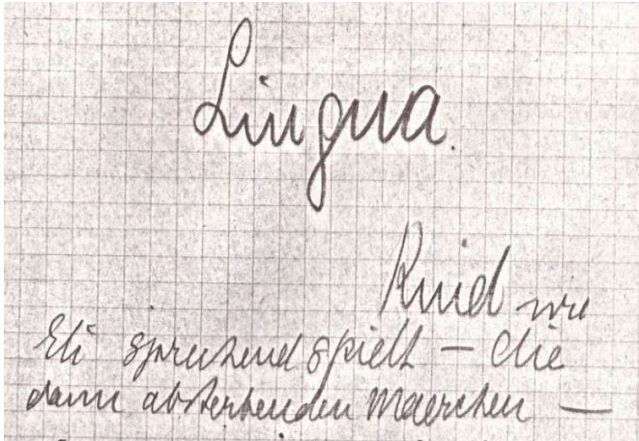 Lingua.
Kind wie
Eli sprechend spielt — die
dann absterbenden Maerchen —